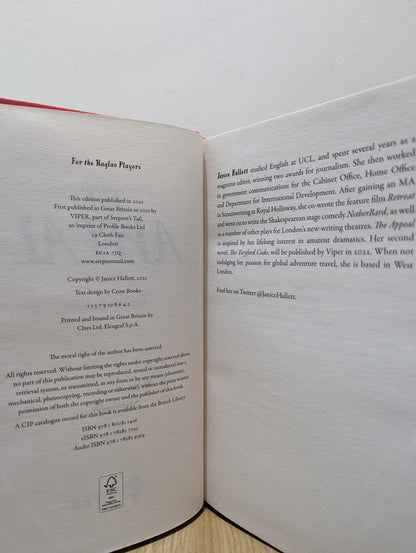 For the Raglan Players
This edition published in 2021
First published in Great Britain in 2021 by
VIPER, part of Serpent's Tail,
an imprint of Profile Books Ltd
29 Cloth Fair
London
EC1A 7JQ
www.serpentstail.com
Copyright © Janice Hallett, 2021
Text design by Crow Books
1 3 5 7 9 10 8 6 4 2
Printed and bound in Great Britain by
Clays Ltd, Elcograf S.p.A.
The moral right of the author has been asserted.
All rights reserved. Without limiting the rights under copyright reserved above,
no part of this publication may be reproduced, stored or introduced into a
retrieval system, or transmitted, in any form or by any means (electronic,
mechanical, photocopying, recording or otherwise), without the prior written
permission of both the copyright owner and the publisher of this book.
A CIP catalogue record for this book is available from the British Library.
ISBN 978 1 80081 1416
eISBN 978 1 78283 7053
Audio ISBN 978 1 78283 9569
FSC
Janice Hallett studied English at UCL, and spent several years as a
magazine editor, winning two awards for journalism. She then worked
in government communications for the Cabinet Office, Home Office
and Department for International Development. After gaining an MA
in Screenwriting at Royal Holloway, she co-wrote the feature film Retreat
and went on to write the Shakespearean stage comedy NetherBard, as well
as a number of other plays for London's new-writing theatres. The Appeal
is inspired by her lifelong interest in amateur dramatics. Her second
novel, The Twyford Code, will be published by Viper in 2022. When not
indulging her passion for global adventure travel, she is based in West
London.
Find her on Twitter @JaniceHallett.